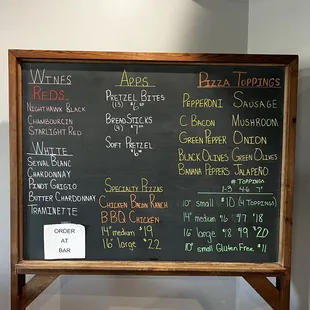 Wines
Reds
Nighthawk Black
Chambourcin
Starlight Red
White
Seyval Blanc
Chardonnay
Pinot Grigio
Butter Chardonnay
Traminette
ORDER
AT
BAR
Apps
Pretzel Bites
(13) $6
BreadSticks
(4) $7
Soft Pretzel
$6
Specialty Pizzas
Chicken Bacon Ranch
BBQ Chicken
14" medium $19
16" large $22
Pizza Toppings
Pepperoni Sausage
C. Bacon Mushroom
Green Pepper Onion
Black Olives Green Olives
Banana Peppers Jalapeño
# Toppings
1-3 4-6 7
10" small $10 (4 Toppings)
14" medium $16 $17 $18
16" large $18 $19 $20
10" small Gluten Free $11